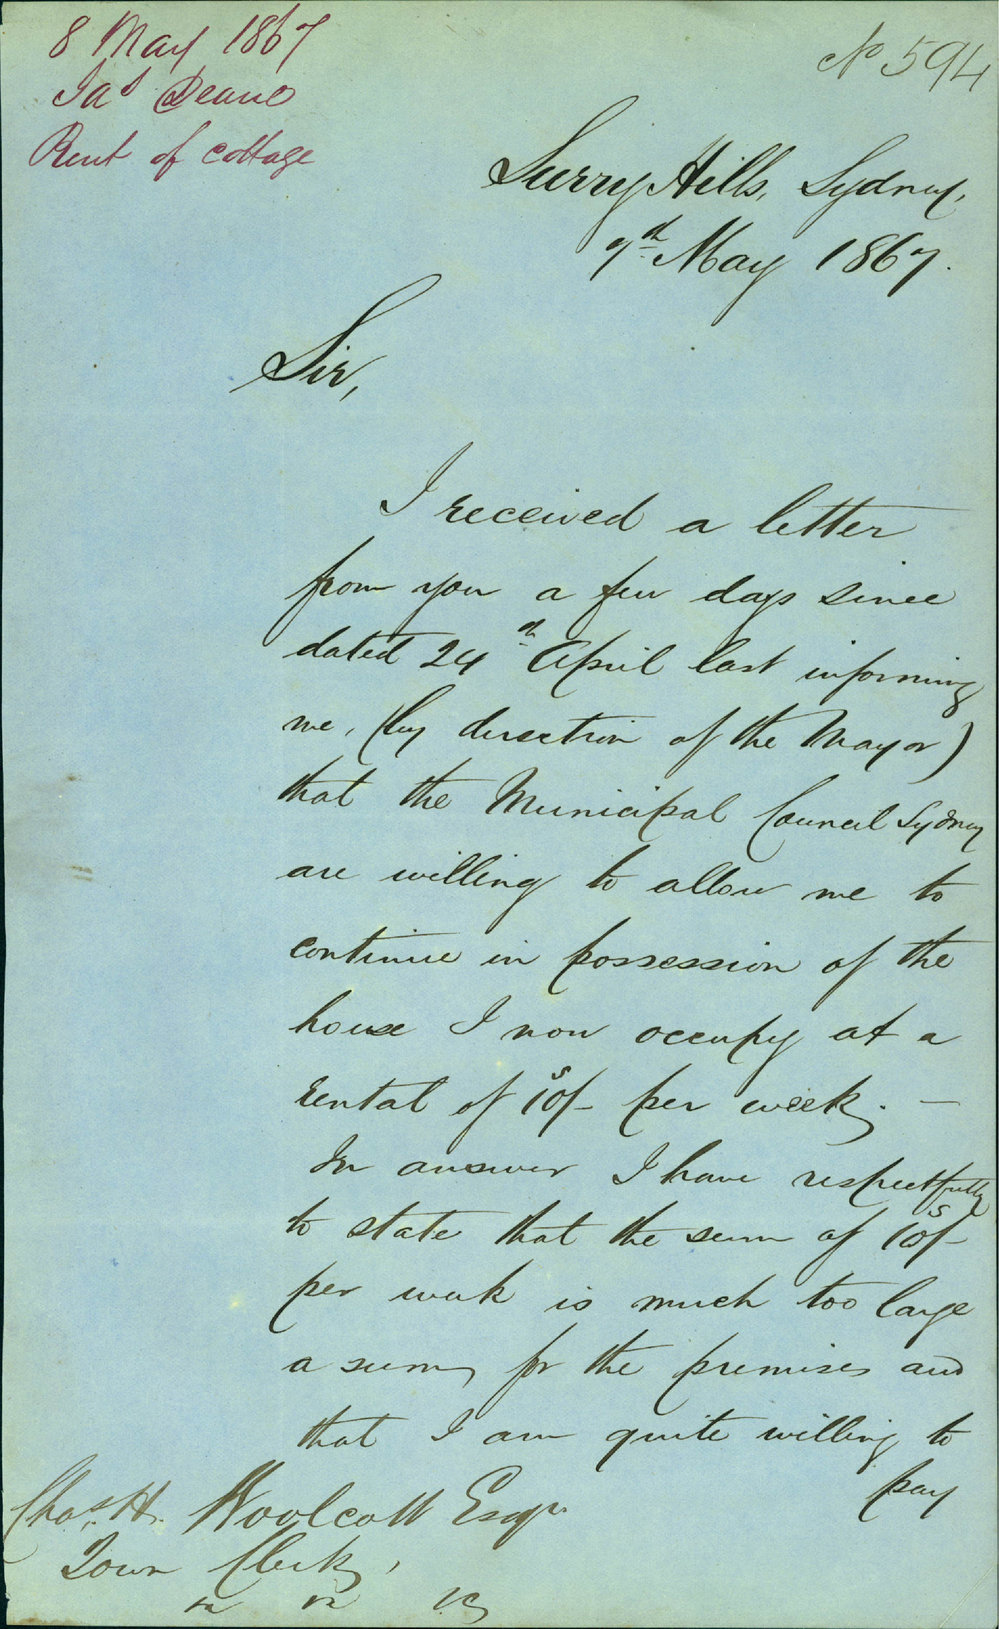 8 May 1867
Jas Deane
Rent of cottage
No 594
Surry Hills, Sydney,
7th May 1867.
Sir,
I received a letter
from you a few days since
dated 24th April last informing
me, (by direction of the Mayor)
that the Municipal Council Sydney
are willing to allow me to
continue in possession of the
house I now occupy at a
rental of 10s/- per week. —
In answer I have respectfully
to state that the sum of 10s/-
per week is much too large
a sum, for the premises and
that I am quite willing to
pay
Chas. H. Woolcott Esqr
Town Clerk,